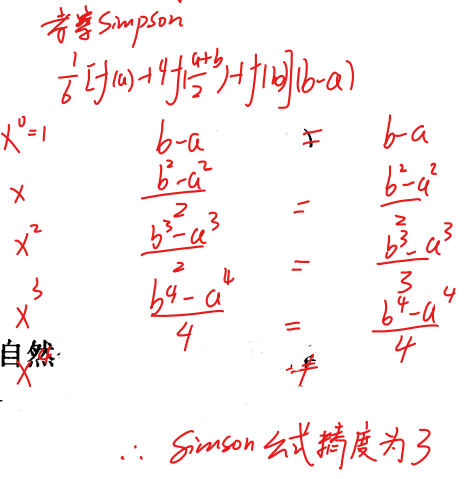 考察Simpson
1/6[f(a)+4f(a+b/2)+f(b)](b-a)
x^0=1 b-a = b-a
x b^2-a^2/2 = b^2-a^2/2
x^2 b^3-a^3/2 = b^3-a^3/3
x^3 b^4-a^4/4 = b^4-a^4/4
自然
x^4 ≠
∴ Simson公式精度为3